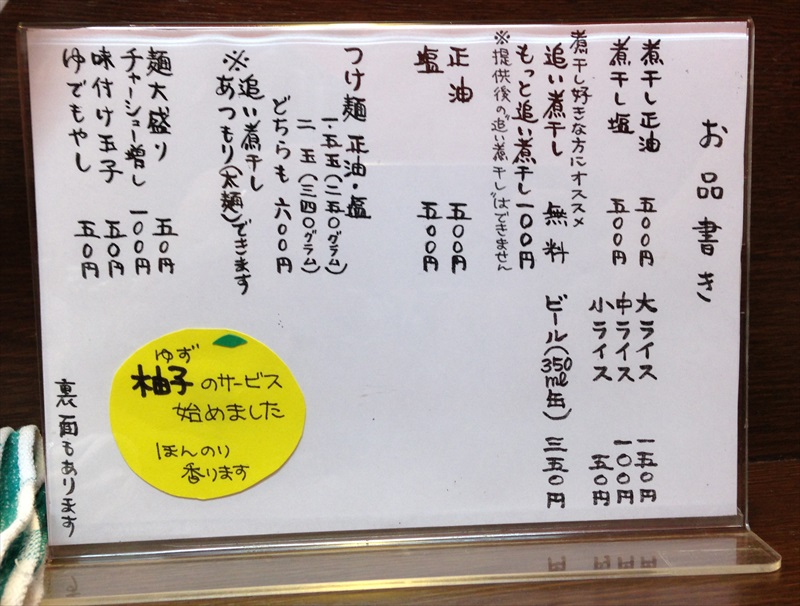 お品書き
煮干し正油 五〇〇円
煮干し塩 五〇〇円
煮干し好きな方にオススメ
追い煮干し 無料
もっと追い煮干し一〇〇円
※提供後の〝追い煮干し〟はできません
正油 五〇〇円
塩 五〇〇円
つけ麺 正油・塩
一.五玉(二五〇グラム)
二 玉(三四〇グラム)
どちらも 六〇〇円
※追い煮干し
あつもり(太麺)できます
麺大盛り 五〇円
チャーシュー増し 一〇〇円
味付け玉子 五〇円
ゆでもやし 五〇円
大ライス 一五〇円
中ライス 一〇〇円
小ライス 五〇円
ビール(350ml缶) 三五〇円
ゆず
柚子のサービス
始めました
ほんのり
香ります
裏面もあります